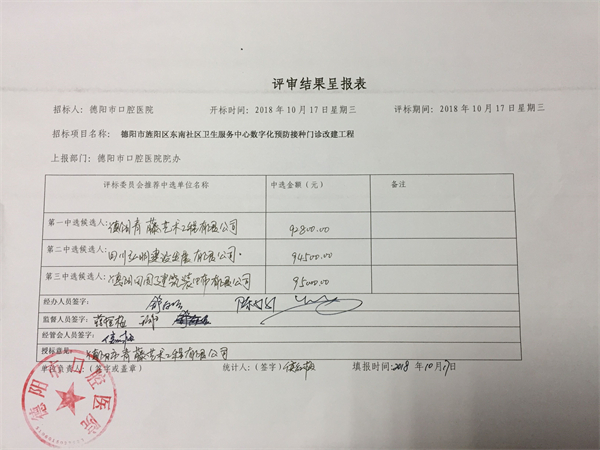 评审结果呈报表
招标人：德阳市口腔医院 开标时间：2018年10月17日星期三 评标期间：2018年10月17日星期三
招标项目名称：德阳市旌阳区东南社区卫生服务中心数字化预防接种门诊改建工程
上报部门：德阳市口腔医院院办
评标委员会推荐中选单位名称 中选金额（元） 备注
第一中选候选人：德阳青藤艺术工程有限公司 92800.00
第二中选候选人：四川弘 有限公司 94500.00
第三中选候选人：德阳 建筑装饰有限公司 95000.00
经办人员签字：
监督人员签字：
经管会人员签字：
授标意见：德阳市青藤艺术工程有限公司
单位负责人：（签字或盖章） 统计人：（签字） 填报时间：2018年10月17日
德阳市口腔医院